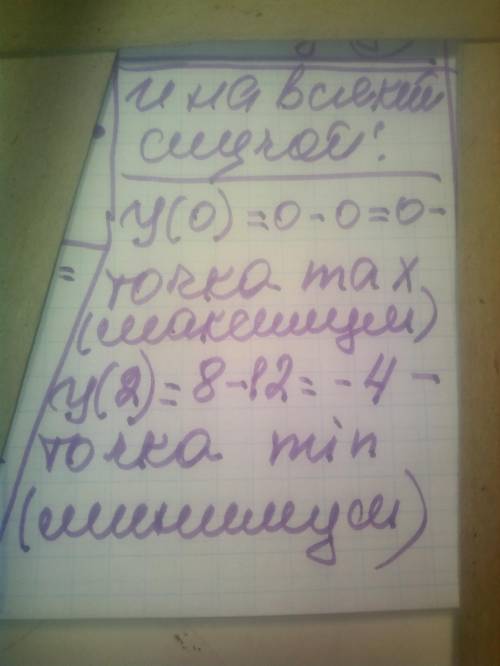 и на всякий
случай:
y(0) = 0 - 0 = 0 -
=
точка max
(максимум)
y(2) = 8 - 12 = -4 -
точка min
(минимум)